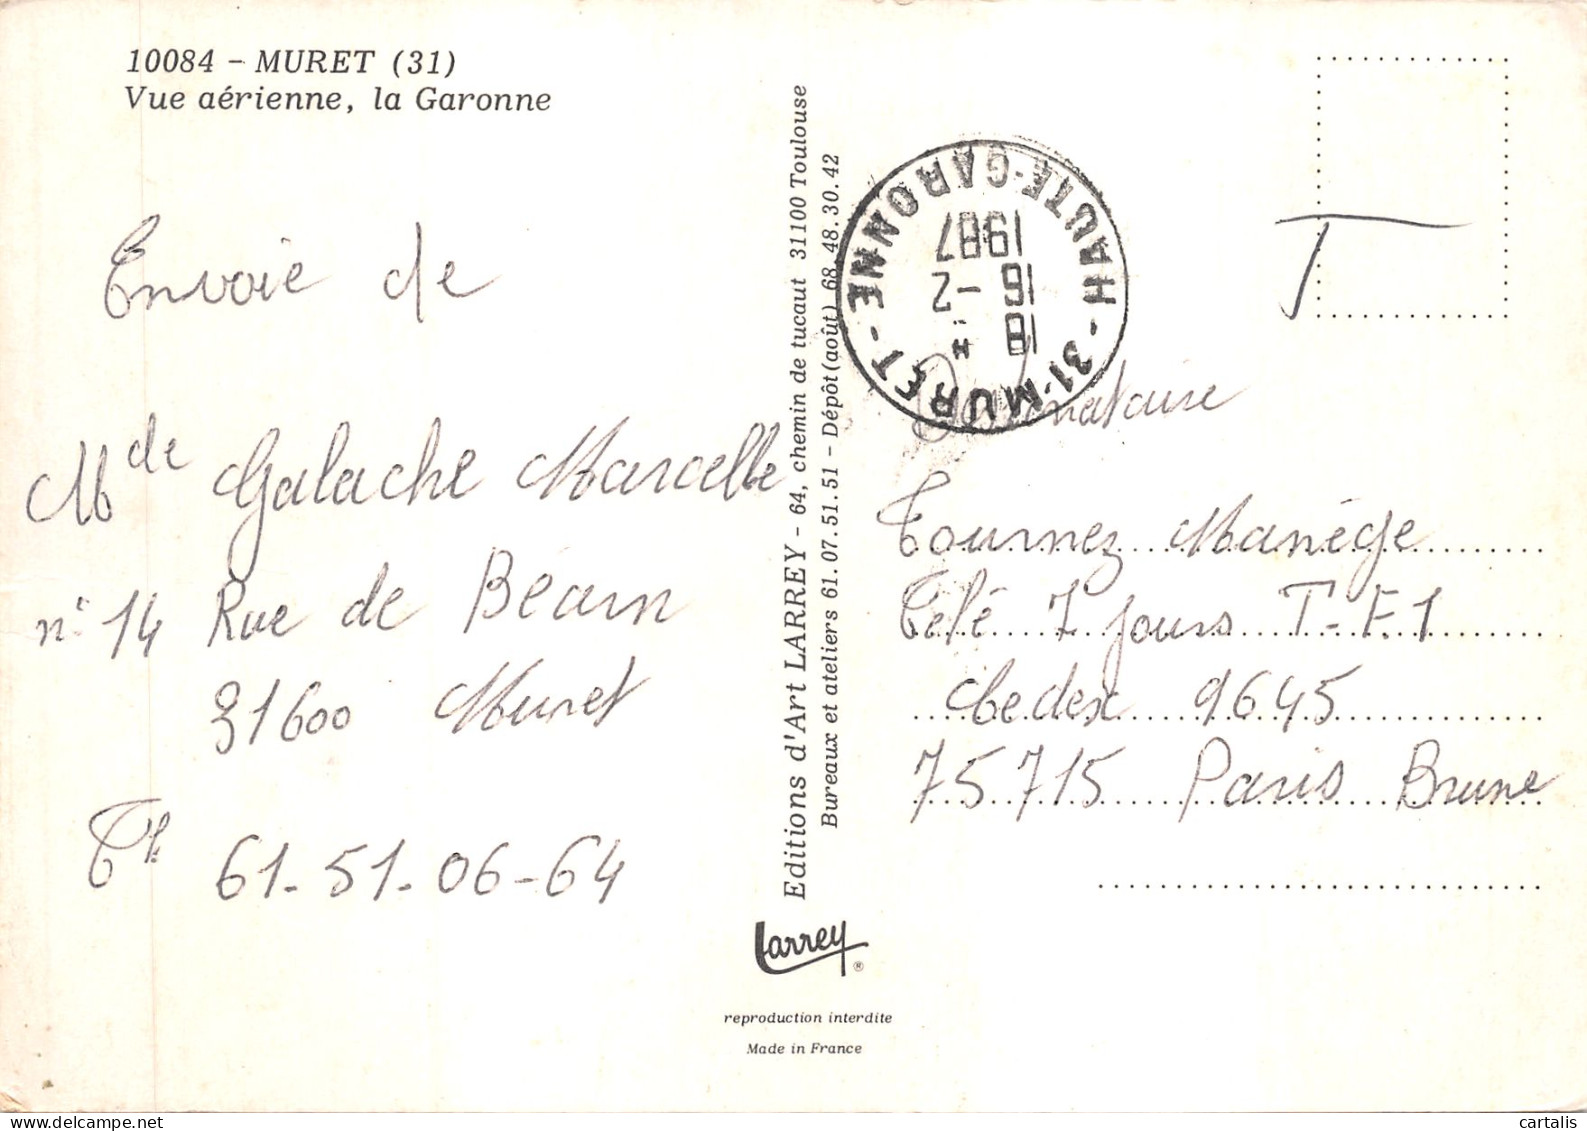 10084 – MURET (31)
Vue aérienne, la Garonne
Envoie de
Mde Galache Marcelle
n° 14 Rue de Béarn
31600 Muret
Tl 61-51-06-64
Editions d'Art LARREY – 64, chemin de tucaut 31100 Toulouse
Bureaux et ateliers 61.07.51.51 – Dépôt (août) 68.48.30.42
Larrey ®
reproduction interdite
Made in France
31-MURET-
HAUTE-GARONNE
18 H
16 -2
1987
T
Destinataire
Tournez Manége
Télé 7 jours T-F.1
Cedex 9645
75715 Paris Brune
cartalis